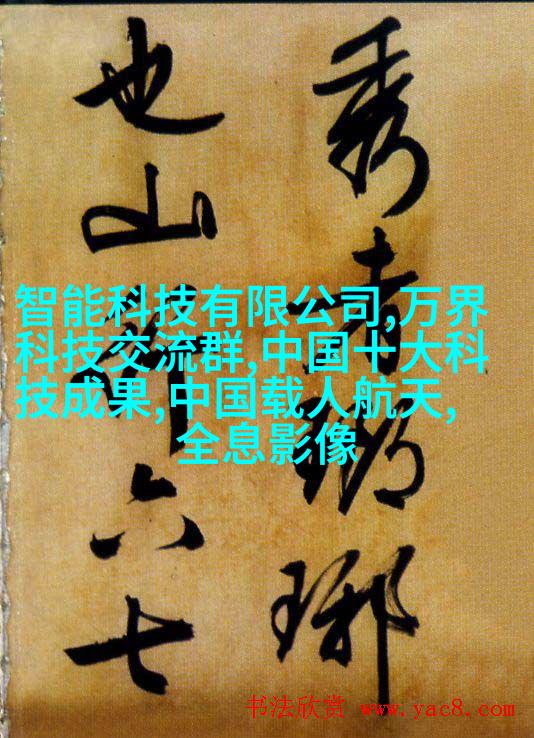 秀者瑯琊
也山行六七
智能科技有限公司,万界
科技交流群,中国十大科
技成果,中国载人航天,
全息影像
书法欣赏 www.yac8.com